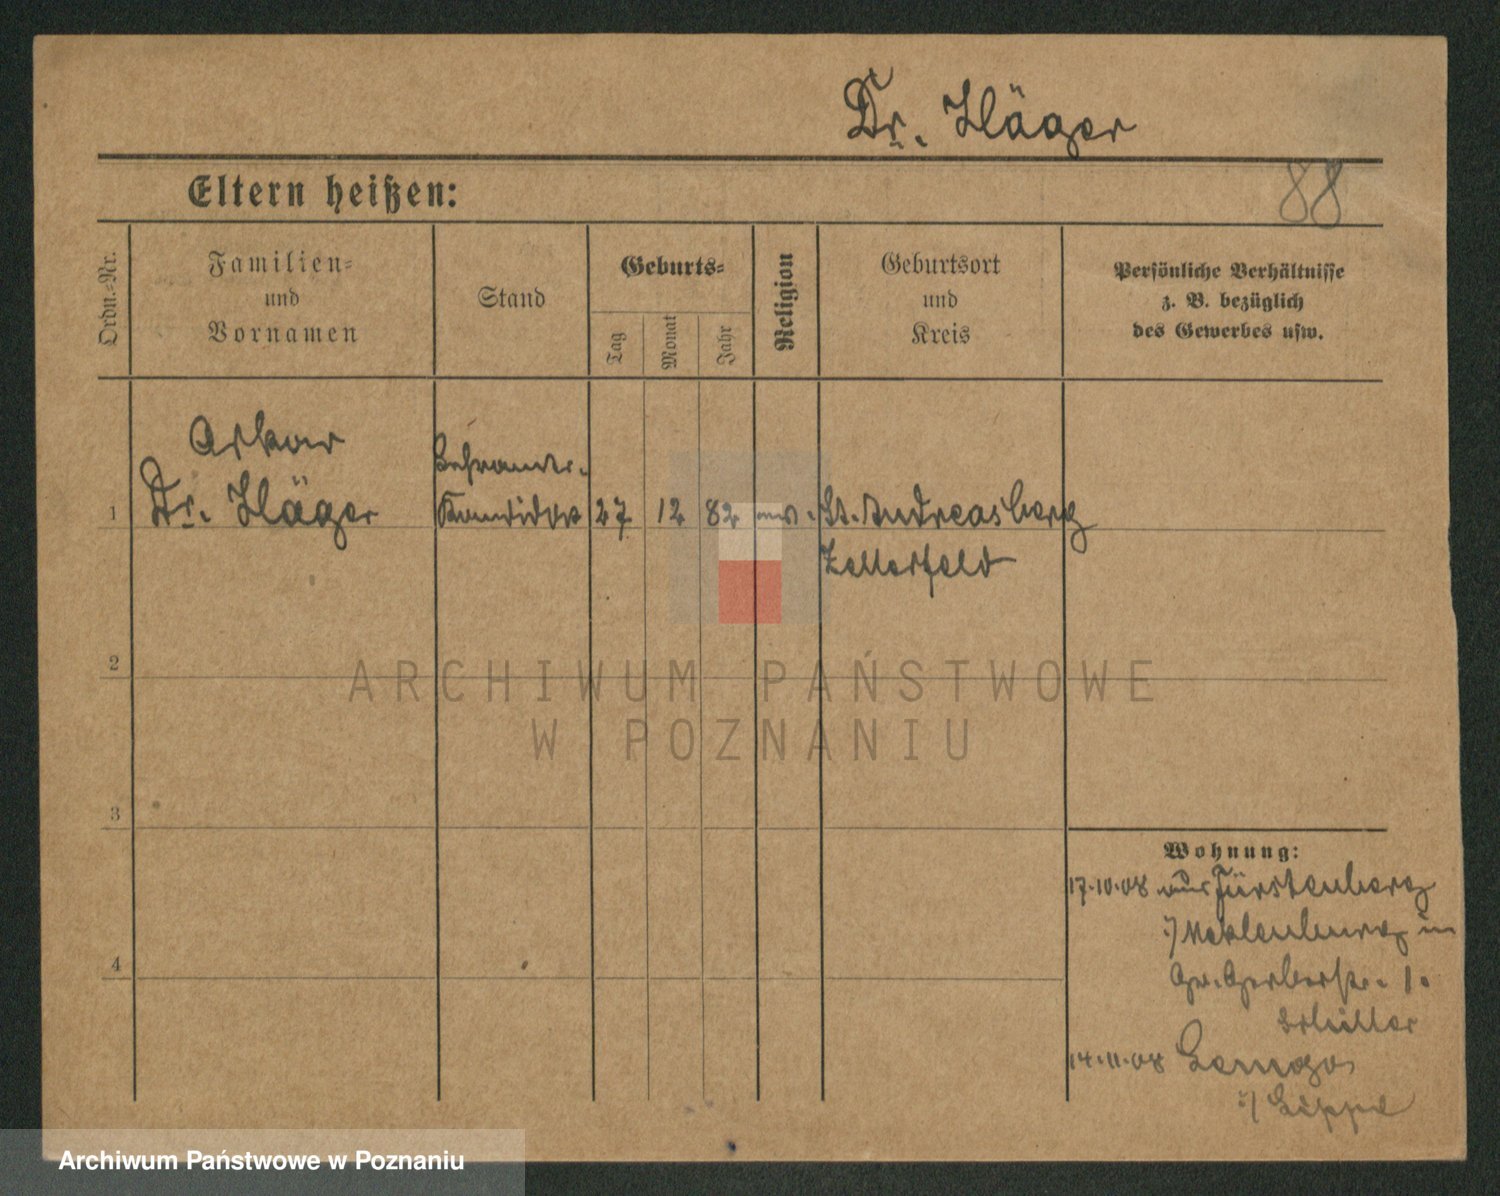 Dr. Häger
88
Eltern heißen:
Ordn.-Nr.
Familien-
und
Vornamen
Stand
Geburts-
Tag
Monat
Jahr
Religion
Geburtsort
und
Kreis
Persönliche Verhältnisse
z. B. bezüglich
des Gewerbes usw.
Oskar
1 Dr. Häger
Lehramts-
Kandidat 27 12 82 St. Andreasberg
Zellerfeld
2
ARCHIWUM PAŃSTWOWE
W POZNANIU
3
Wohnung:
17.10.08 aus Fürstenberg
i/ Meklenburg in
Gr. Gerberstr. 1.
4
14.11.08 Lemgo
i/ Lippe
Archiwum Państwowe w Poznaniu